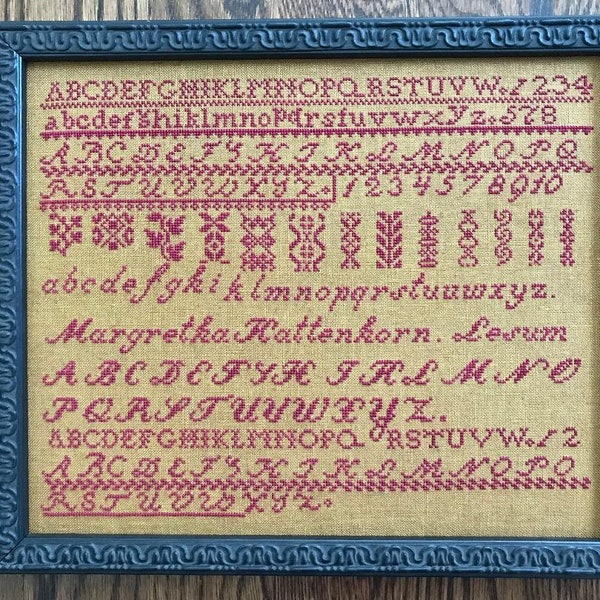 ABCDEFGHIKLMNOPQ RSTUVW.1234
abcdefghiklmnopqrstuvwxyz.578
ABCDEFGHIKLMNOPQ
RSTUVWXYZ. 1234578910
abcdefghiklmnopqrstuuwxyz.
Margretha Hattenhorn. Lesum
ABCDEFGH IKLMNO
PQRSTUVWXYZ.
ABCDEFGHIKLMNOPQ RSTUVW.12
ABCDEFGHIKLMNOPQ
RSTUVWXYZ.